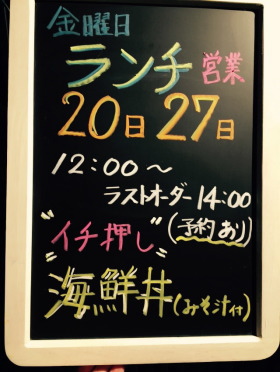 金曜日
ランチ営業
20日 27日
12:00〜
ラストオーダー 14:00
(予約あり)
"イチ押し"
海鮮丼(みそ汁付)